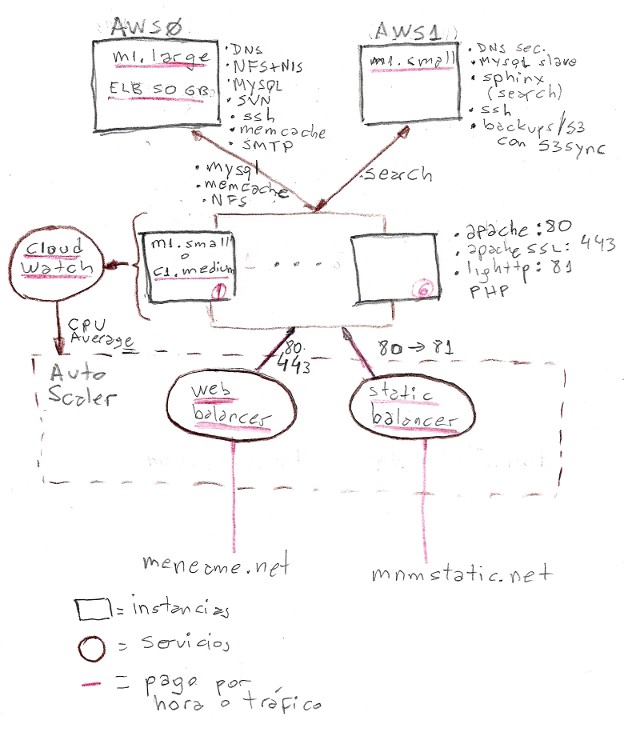 AWS0
m1.large
ELB 50 GB.
• DNS
• NFS+NIS
• Mysql
• SVN
• ssh
• memcache
• SMTP
AWS1
m1.small
• DNS sec.
• Mysql slave
• sphinx
(search)
• ssh
• backups/S3
con S3sync
• mysql
• memcache
• NFS
search
Cloud
Watch
m1.small
o
c1.medium
1
6
• apache :80
• apache SSL: 443
• lighttp: 81
PHP
CPU
Average
80
443
80→81
Auto
Scaler
web
balancer
static
balancer
meneame.net
mnmstatic.net
= instancias
= servicios
= pago por
hora o tráfico